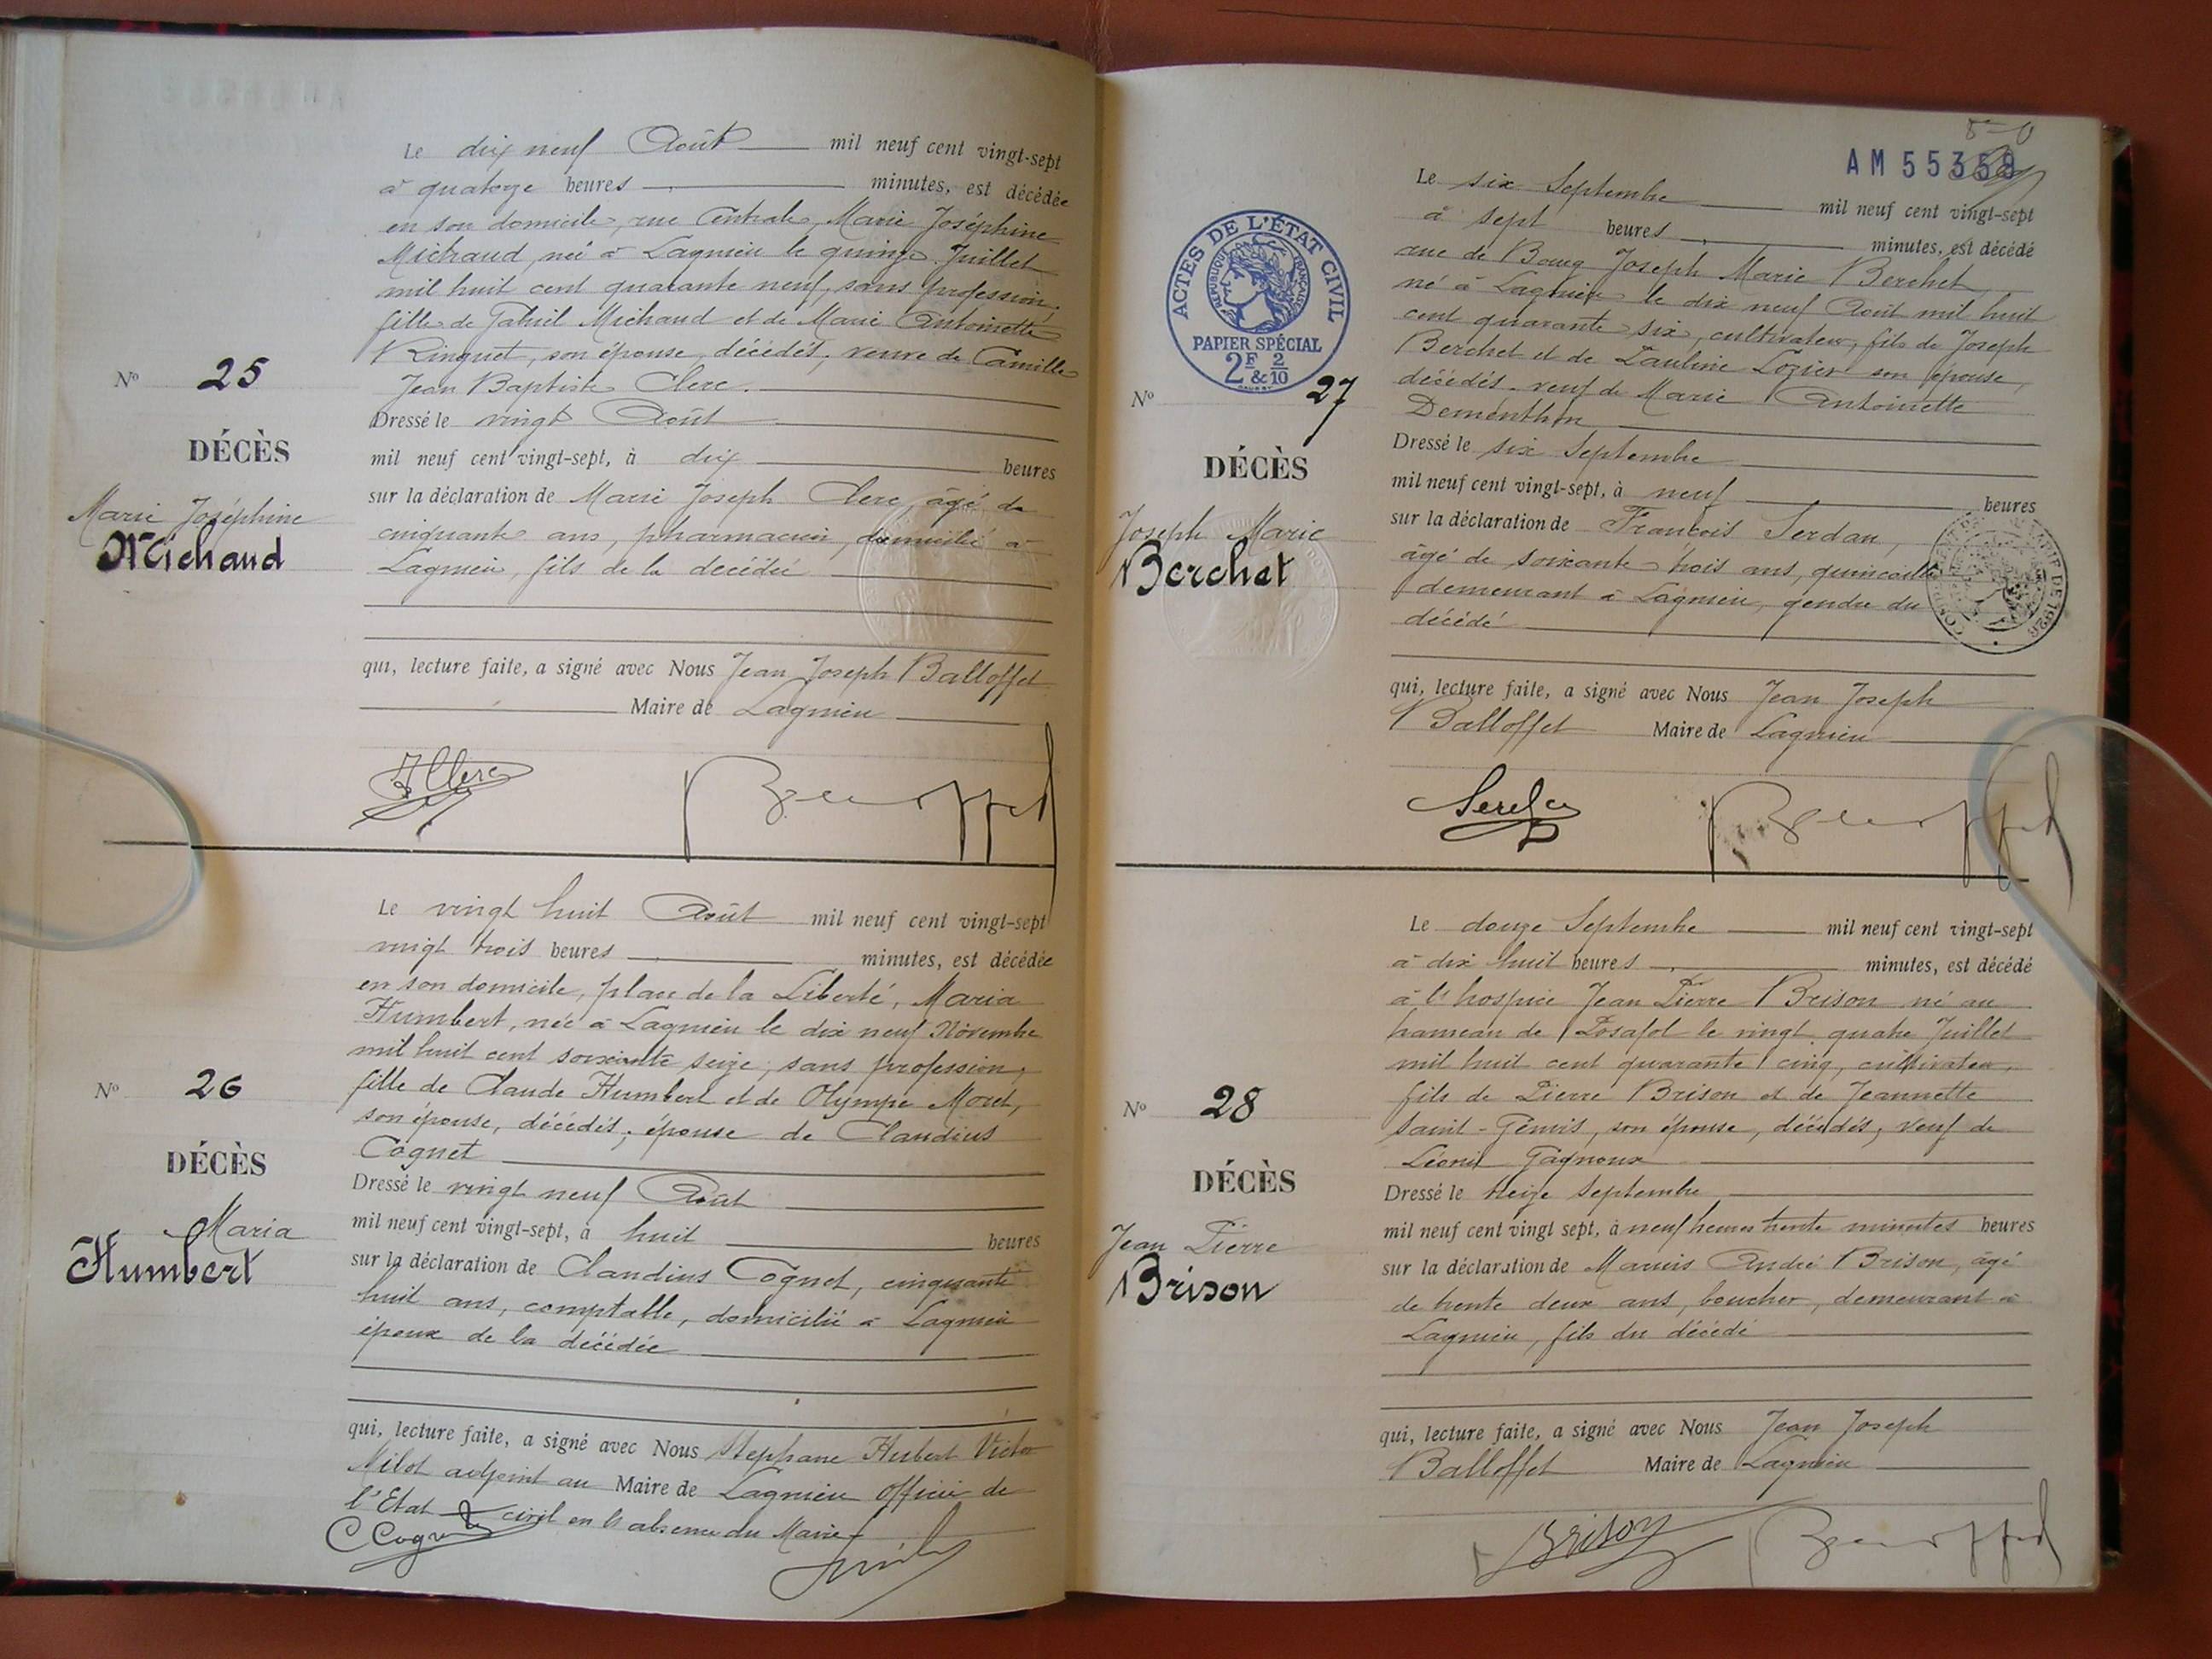 Le dix neuf Août mil neuf cent vingt-sept
à quatorze heures minutes, est décédée
en son domicile, rue Centrale, Marie Joséphine
Michaud, née à Lagnieu le quinze Juillet
mil huit cent quarante neuf, sans profession,
fille de Gabriel Michaud et de Marie Antoinette
Ringuet, son épouse, décédés, veuve de Camille
Jean Baptiste Clerc.
Nº 25
DÉCÈS
Marie Joséphine
Michaud
Dressé le vingt Août
mil neuf cent vingt-sept, à dix heures
sur la déclaration de Marie Joseph Clerc, âgé de
cinquante ans, pharmacien, domicilié à
Lagnieu, fils de la décédée
qui, lecture faite, a signé avec Nous Jean Joseph Balloffet
Maire de Lagnieu
Clerc
Balloffet
Le vingt huit Août mil neuf cent vingt-sept
vingt trois heures minutes, est décédée
en son domicile, place de la Liberté, Maria
Humbert, née à Lagnieu le dix neuf Novembre
mil huit cent soixante seize, sans profession,
fille de Claude Humbert et de Olympe Moret,
son épouse, décédés, épouse de Claudius
Cognet
Nº 26
DÉCÈS
Maria
Humbert
Dressé le vingt neuf Août
mil neuf cent vingt-sept, à huit heures
sur la déclaration de Claudius Cognet, cinquante
huit ans, comptable, domicilié à Lagnieu
époux de la décédée
qui, lecture faite, a signé avec Nous Stéphane Hubert Victor
Milot adjoint au Maire de Lagnieu officier de
l'Etat civil en l'absence du Maire
C Cognet
AM 55359
ACTES DE L'ÉTAT CIVIL
RÉPUBLIQUE FRANÇAISE
PAPIER SPÉCIAL
2F & 2/10
Le six Septembre mil neuf cent vingt-sept
à sept heures minutes, est décédé
rue de Bourg Joseph Marie Berchet,
né à Lagnieu le dix neuf Août mil huit
cent quarante six, cultivateur, fils de Joseph
Berchet et de Pauline Lozier son épouse,
décédés, veuf de Marie Antoinette
Dementhon
Nº 27
DÉCÈS
Joseph Marie
Berchet
Dressé le six Septembre
mil neuf cent vingt-sept, à neuf heures
sur la déclaration de François Serdan,
âgé de soixante trois ans, quincailler
demeurant à Lagnieu, gendre du
décédé
DE 1926
qui, lecture faite, a signé avec Nous Jean Joseph
Balloffet Maire de Lagnieu
Balloffet
Le douze Septembre mil neuf cent vingt-sept
à dix huit heures minutes, est décédé
à l'hospice Jean Pierre Brison né au
hameau de Posafol le vingt quatre Juillet
mil huit cent quarante cinq, cultivateur,
fils de Pierre Brison et de Jeannette
Saint-Genis, son épouse, décédés, veuf de
Léonie Gagnoux
Nº 28
DÉCÈS
Jean Pierre
Brison
Dressé le treize Septembre
mil neuf cent vingt sept, à neuf heures trente minutes heures
sur la déclaration de Marius André Brison, âgé
de trente deux ans, boucher, demeurant à
Lagnieu, fils du décédé
qui, lecture faite, a signé avec Nous Jean Joseph
Balloffet Maire de Lagnieu
Brison
Balloffet